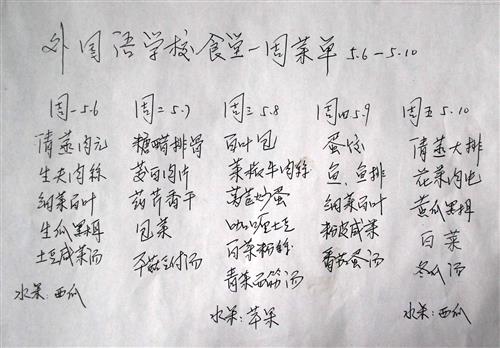 外国语学校食堂一周菜单 5.6-5.10
周一 5.6
清蒸肉元
生夫肉丝
纳菜百叶
生瓜黑木耳
土豆咸菜汤
水果:西瓜
周二 5.7
糖醋排骨
茭白肉片
药芹香干
包菜
平菇豆付汤
周三 5.8
百叶包
菜椒牛肉丝
莴苣炒蛋
咖喱土豆
白菜粉丝
青菜面筋汤
水果:苹果
周四 5.9
蛋饺
鱼、鱼排
纳菜百叶
粉皮咸菜
番茄蛋汤
周五 5.10
清蒸大排
花菜肉
黄瓜黑木耳
白菜
冬瓜汤
水果:西瓜